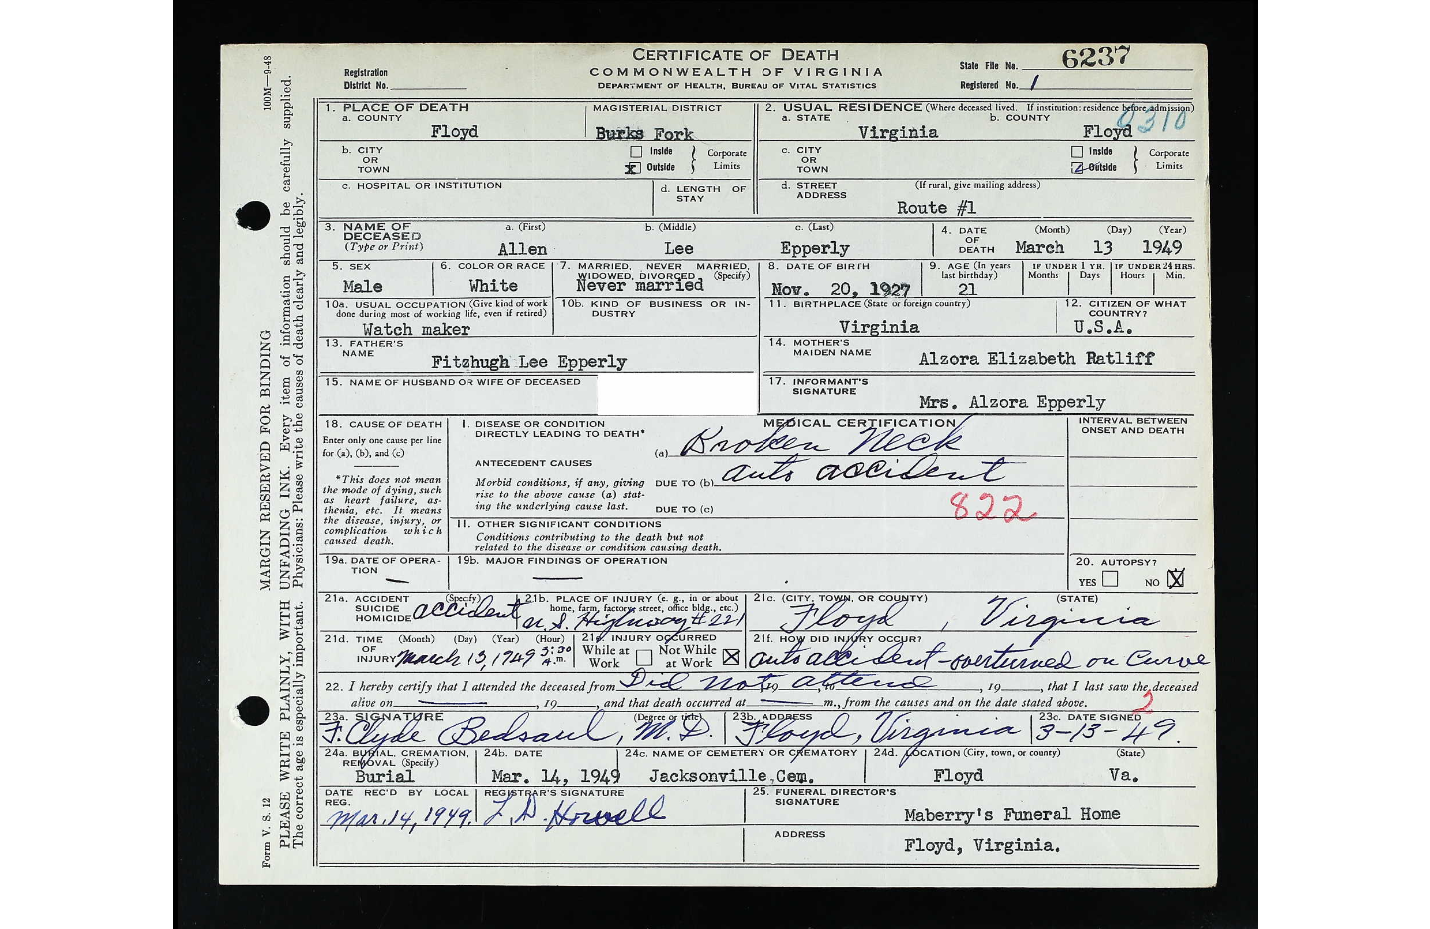 CERTIFICATE OF DEATH
COMMONWEALTH OF VIRGINIA
DEPARTMENT OF HEALTH, BUREAU OF VITAL STATISTICS
Registration District No.
State File No. 6237
Registered No. 1
100M—9-48
MARGIN RESERVED FOR BINDING
PLEASE WRITE PLAINLY, WITH UNFADING INK. Every item of information should be carefully supplied.
The correct age is especially important. Physicians: Please write the causes of death clearly and legibly.
Form V. S. 12
1. PLACE OF DEATH
a. COUNTY Floyd
MAGISTERIAL DISTRICT Burks Fork
2. USUAL RESIDENCE (Where deceased lived. If institution: residence before admission)
a. STATE Virginia
b. COUNTY Floyd
b. CITY OR TOWN
Inside
Outside
Corporate Limits
c. CITY OR TOWN
Inside
Outside
Corporate Limits
c. HOSPITAL OR INSTITUTION
d. LENGTH OF STAY
d. STREET ADDRESS (If rural, give mailing address)
Route #1
3. NAME OF DECEASED (Type or Print)
a. (First) Allen
b. (Middle) Lee
c. (Last) Epperly
4. DATE OF DEATH (Month) (Day) (Year)
March 13 1949
5. SEX Male
6. COLOR OR RACE White
7. MARRIED, NEVER MARRIED, WIDOWED, DIVORCED (Specify)
Never married
8. DATE OF BIRTH Nov. 20, 1927
9. AGE (In years last birthday) 21
IF UNDER 1 YR. Months Days
IF UNDER 24 HRS. Hours Min.
10a. USUAL OCCUPATION (Give kind of work done during most of working life, even if retired)
Watch maker
10b. KIND OF BUSINESS OR INDUSTRY
11. BIRTHPLACE (State or foreign country)
Virginia
12. CITIZEN OF WHAT COUNTRY?
U.S.A.
13. FATHER'S NAME
Fitzhugh Lee Epperly
14. MOTHER'S MAIDEN NAME Alzora Elizabeth Ratliff
15. NAME OF HUSBAND OR WIFE OF DECEASED
17. INFORMANT'S SIGNATURE
Mrs. Alzora Epperly
18. CAUSE OF DEATH
Enter only one cause per line for (a), (b), and (c)
*This does not mean the mode of dying, such as heart failure, asthenia, etc. It means the disease, injury, or complication which caused death.
MEDICAL CERTIFICATION
INTERVAL BETWEEN ONSET AND DEATH
I. DISEASE OR CONDITION DIRECTLY LEADING TO DEATH*
(a) Broken Neck
ANTECEDENT CAUSES
Morbid conditions, if any, giving rise to the above cause (a) stating the underlying cause last.
DUE TO (b) auto accident
DUE TO (c)
822
II. OTHER SIGNIFICANT CONDITIONS
Conditions contributing to the death but not related to the disease or condition causing death.
19a. DATE OF OPERATION
19b. MAJOR FINDINGS OF OPERATION
20. AUTOPSY?
YES NO
21a. ACCIDENT SUICIDE HOMICIDE (Specify) accident
21b. PLACE OF INJURY (e. g., in or about home, farm, factory, street, office bldg., etc.)
U.S. Highway #221
21c. (CITY, TOWN, OR COUNTY) (STATE)
Floyd, Virginia
21d. TIME OF INJURY (Month) (Day) (Year) (Hour)
March 13, 1949 3:30 A.m.
21e. INJURY OCCURRED
While at Work
Not While at Work
21f. HOW DID INJURY OCCUR?
auto accident-overturned on Curve
22. I hereby certify that I attended the deceased from Did not attend, 19, to, 19, that I last saw the deceased
alive on, 19, and that death occurred at m., from the causes and on the date stated above.
2
23a. SIGNATURE (Degree or title)
F. Clyde Bedsaul, M.D.
23b. ADDRESS
Floyd, Virginia
23c. DATE SIGNED
3-13-49.
24a. BURIAL, CREMATION, REMOVAL (Specify)
Burial
24b. DATE
Mar. 14, 1949
24c. NAME OF CEMETERY OR CREMATORY
Jacksonville, Cem.
24d. LOCATION (City, town, or county) (State)
Floyd Va.
DATE REC'D BY LOCAL REG.
Mar. 14, 1949.
REGISTRAR'S SIGNATURE
L. D. Howell
25. FUNERAL DIRECTOR'S SIGNATURE
Maberry's Funeral Home
ADDRESS
Floyd, Virginia.